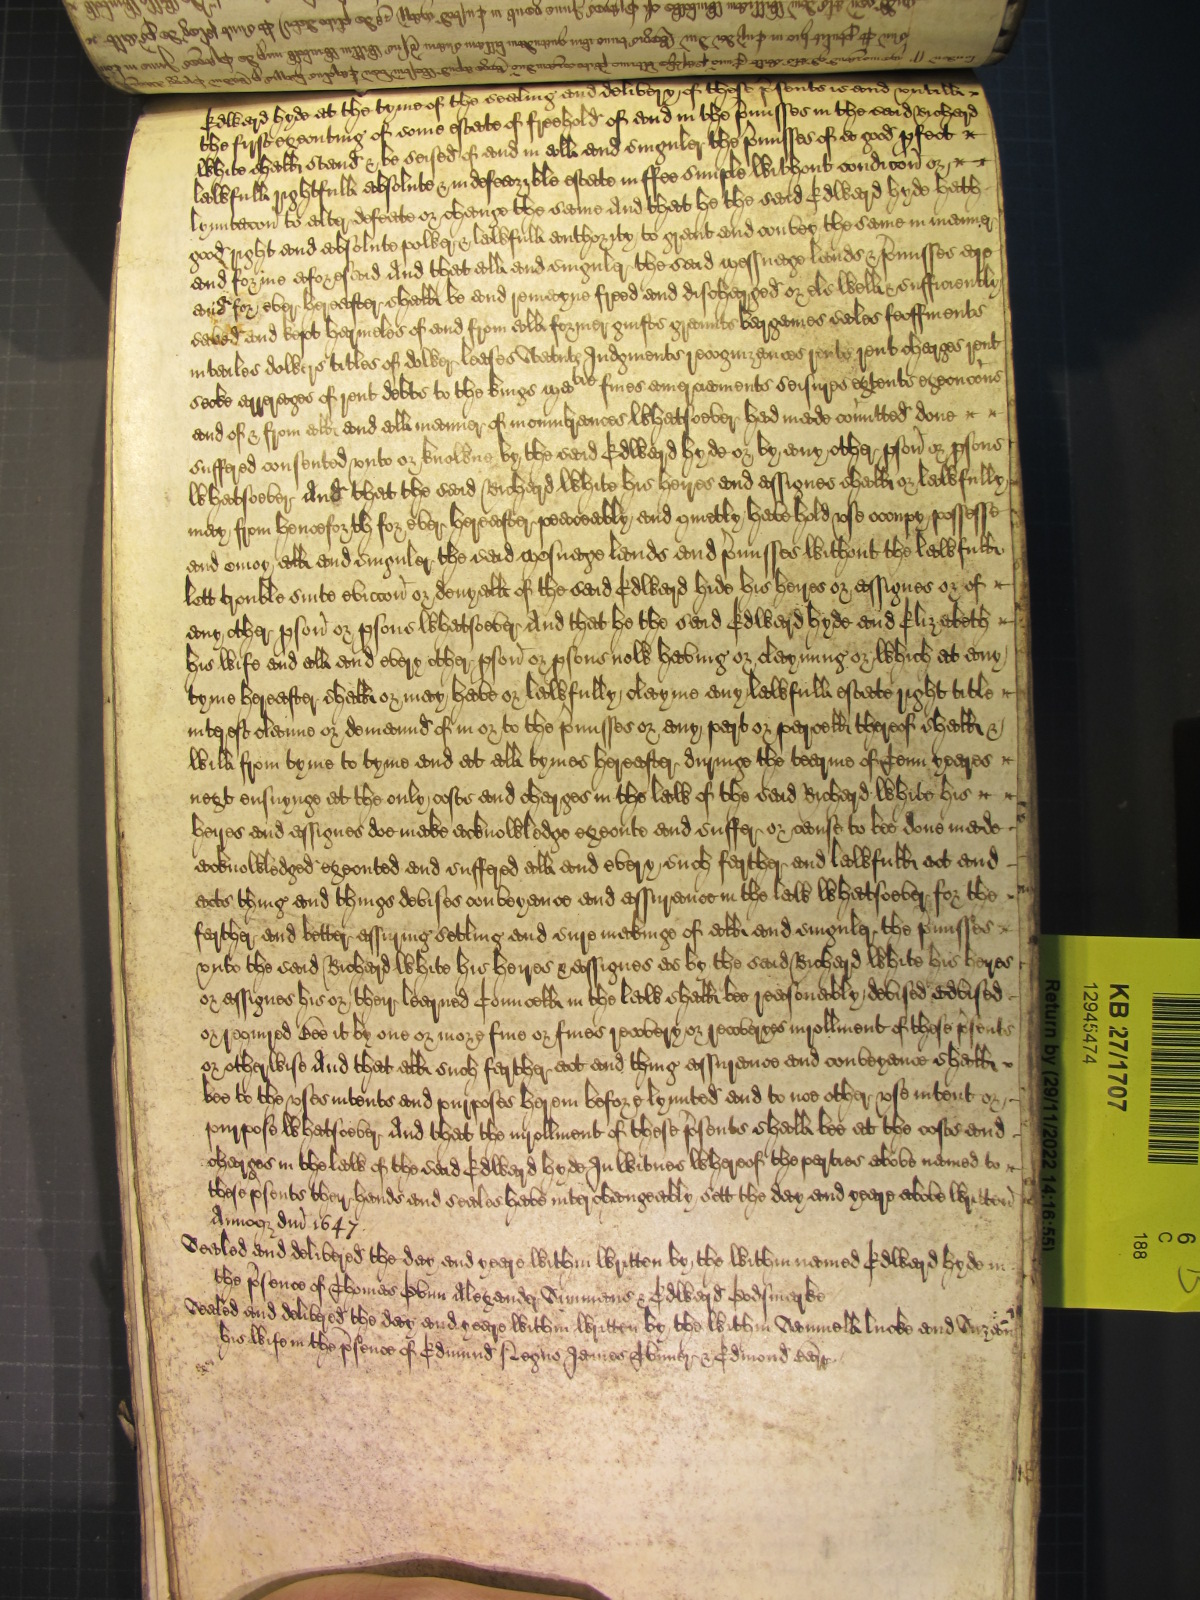 Edward hyde at the tyme of the sealing and delivery of these p̃sents is and untill
the first executing of some estate of freehold of and in the p̃misses in the said Richard
White shall stand & be seised of and in all and singuler the p̃misses of a good pfect
lawfull rightfull absolute & indefeazible estate in ffee simple without condic̃on or
lymitacon to alter defeate or change the same And that he the said Edward hyde hath
good right and absolute power & lawfull authority to grant and convey the same in manner
and forme aforesaid And that all and singuler the said messuage lands & p̃misses are
and for ever hereafter shall be and remayne freed and discharged or els well & sufficiently
saved and kept harmeles of and from all former guifts graunts bargaines sales feoffments
intailes dowers titles of dower leases Statuts Judgments recognizances rents rent charges rent
secke arrerages of rent debts to the kings matie fines amerciaments seisures extents execuc̃ons
and of & from all and all manner of incumbrances whatsoever had made com̃itted done
suffered consented unto or knowne by the said Edward hyde or by any other pson or psons
whatsoever And that the said Richard White his heyres and assignes shall or lawfully
may from henceforth for ever hereafter peaceably and quietly have hold use occupy possesse
and enioy all and singuler the said messuage lands and p̃misses without the lawfull
lett trouble suite eviccon or denyall of the said Edward hide his heyres or assignes or of
any other pson or psons whatsoever And that he the said Edward hyde and Elizabeth
his wife and all and every other pson or psons now having or clayming or which at any
tyme hereafter shall or may have or lawfully clayme any lawfull estate right title
interest claime or demaund of in or to the p̃misses or any part or parcell thereof shall &
will from tyme to tyme and at all tymes hereafter duringe the tearme of Tenn yeares
next ensuynge at the only costs and charges in the law of the said Richard White his
heyres and assignes doe make acknowledge execute and suffer or cause to bee done made
acknowledged executed and suffered all and every such farther and lawfull act and
acts thing and things devises conveyance and assurance in the law whatsoever for the
farther and better assuring setling and sure makinge of all and singuler the p̃misses
unto the said Richard White his heyres & assignes as by the said Richard White his heyres
or assignes his or their learned Councell in the law shall bee reasonably devised advised
or required Bee it by one or more fine or fines recovery or recoveryes inrollment of these p̃sents
or otherwise And that all such farther act and thing assurance and conveyance shall
bee to the uses intents and purposes herein before lymited and to noe other use intent or
purpose whatsoever And that the inrollment of these p̃sents shall bee at the costs and
charges in the law of the said Edward hyde In witnes whereof the parties above named to
these p̃sents their hands and seales have interchangeably sett the day and yeare above written
Annoq dni 1647.
Sealed and delivered the day and yeare within written by the within named Edward hyde in
the p̃sence of Thomas Alexander Simmens & Edward
Sealed and delivered the day and yeare within written by the within Samuell lucke and Suzan
his wife in the p̃sence of Edmund James & Edmond
KB 27/1707
12945474
Return by (29/11/2022 14:16:55)
6
C
188